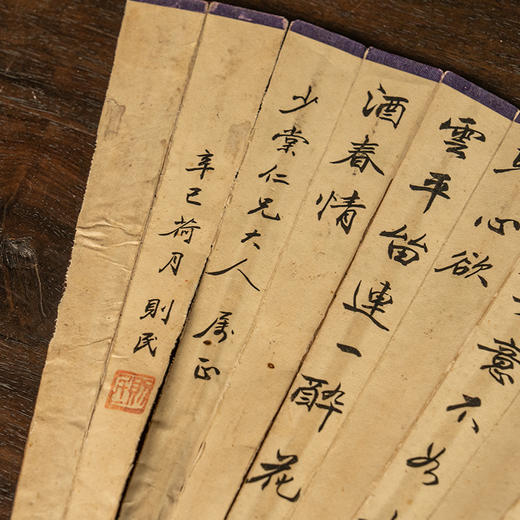 意不
心欲
雲平笛連一醉花
酒春情
少棠仁兄大人属正
辛巳荷月則民